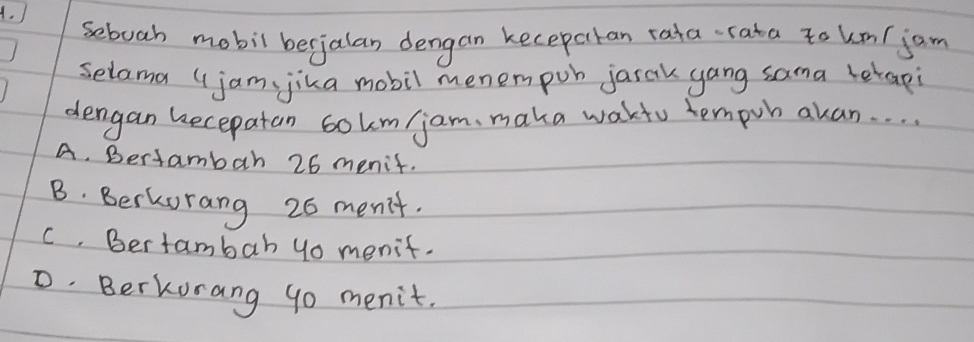 1.
Sebuah mobil berjalan dengan kecepatan rata-rata 70 km/jam
Selama 4 jam, jika mobil menempuh jarak yang sama tetapi
dengan kecepatan 60 km/jam, maka waktu tempuh akan....
A. Bertambah 26 menit.
B. Berkurang 26 menit.
C. Bertambah 40 menit.
D. Berkurang 40 menit.